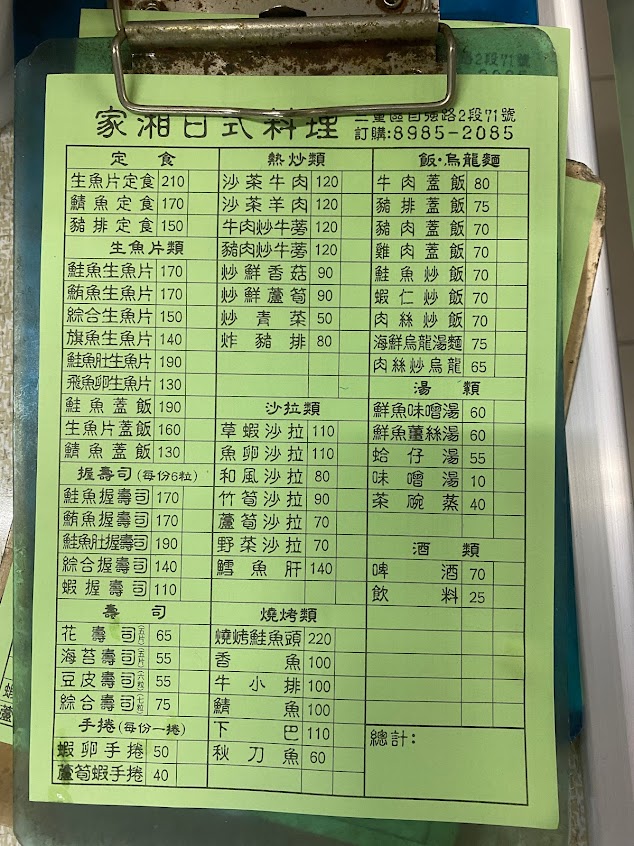 家湘日式料理
三重區自強路2段71號
訂購:8985-2085
定食
生魚片定食 210
鯖魚定食 170
豬排定食 150
生魚片類
鮭魚生魚片 170
鮪魚生魚片 170
綜合生魚片 150
旗魚生魚片 140
鮭魚肚生魚片 190
飛魚卵生魚片 130
鮭魚蓋飯 190
生魚片蓋飯 160
鯖魚蓋飯 130
握壽司(每份6粒)
鮭魚握壽司 170
鮪魚握壽司 170
鮭魚肚握壽司 190
綜合握壽司 140
蝦握壽司 110
壽司
花壽司 65
海苔壽司 55
豆皮壽司 55
綜合壽司 75
手捲(每份一捲)
蝦卵手捲 50
蘆筍蝦手捲 40
熱炒類
沙茶牛肉 120
沙茶羊肉 120
牛肉炒牛蒡 120
豬肉炒牛蒡 120
炒鮮香菇 90
炒鮮蘆筍 90
炒青菜 50
炸豬排 80
沙拉類
草蝦沙拉 110
魚卵沙拉 110
和風沙拉 80
竹筍沙拉 90
蘆筍沙拉 70
野菜沙拉 70
鱈魚肝 140
燒烤類
燒烤鮭魚頭 220
香魚 100
牛小排 100
鯖魚 100
下巴 110
秋刀魚 60
飯·烏龍麵
牛肉蓋飯 80
豬排蓋飯 75
豬肉蓋飯 70
雞肉蓋飯 70
鮭魚炒飯 70
蝦仁炒飯 70
肉絲炒飯 70
海鮮烏龍湯麵 75
肉絲炒烏龍 65
湯類
鮮魚味噌湯 60
鮮魚薑絲湯 60
蛤仔湯 55
味噌湯 10
茶碗蒸 40
酒類
啤酒 70
飲料 25
總計: